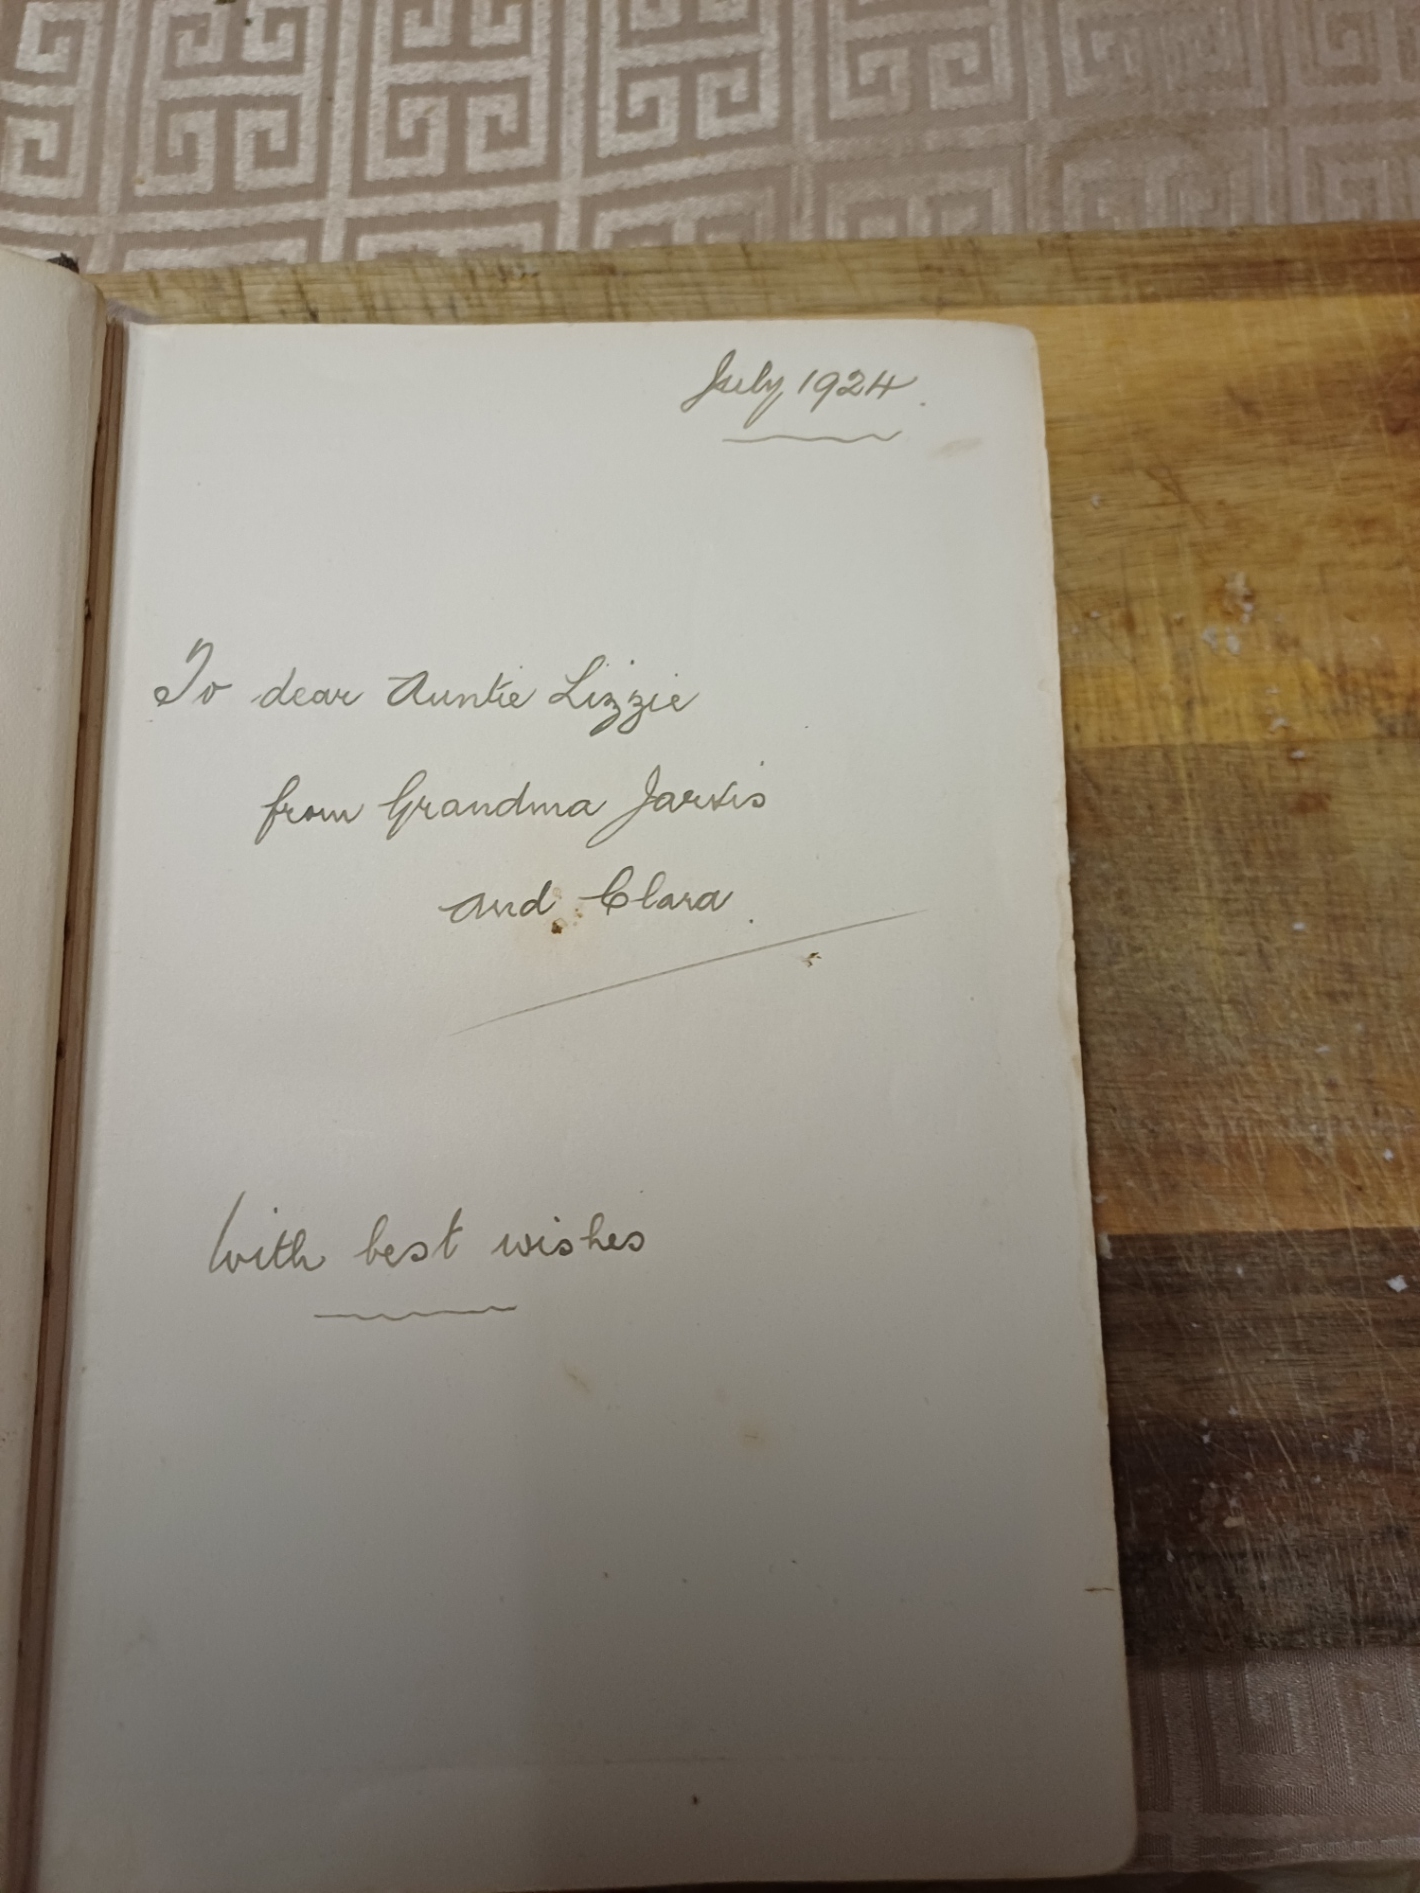 July 1924.
To dear Auntie Lizzie
from Grandma Jarvis
and Clara.
With best wishes